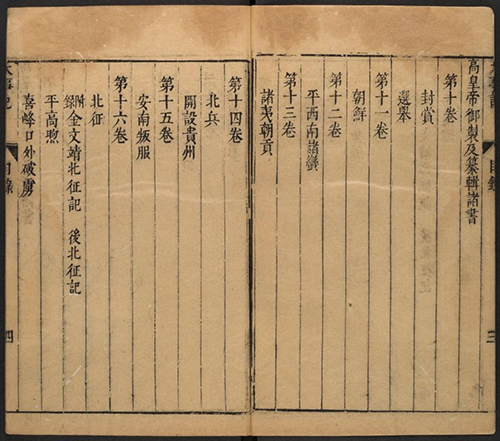 高皇帝御製及纂輯諸書
第十卷
封賞
選舉
第十一卷
朝鮮
第十二卷
平西南諸蠻
第十三卷
諸夷朝貢
目錄
三
第十四卷
北兵
開設貴州
第十五卷
安南叛服
第十六卷
北征
附錄金文靖北征記 後北征記
平高煦
喜峰口外破虜
大事記
目錄
四